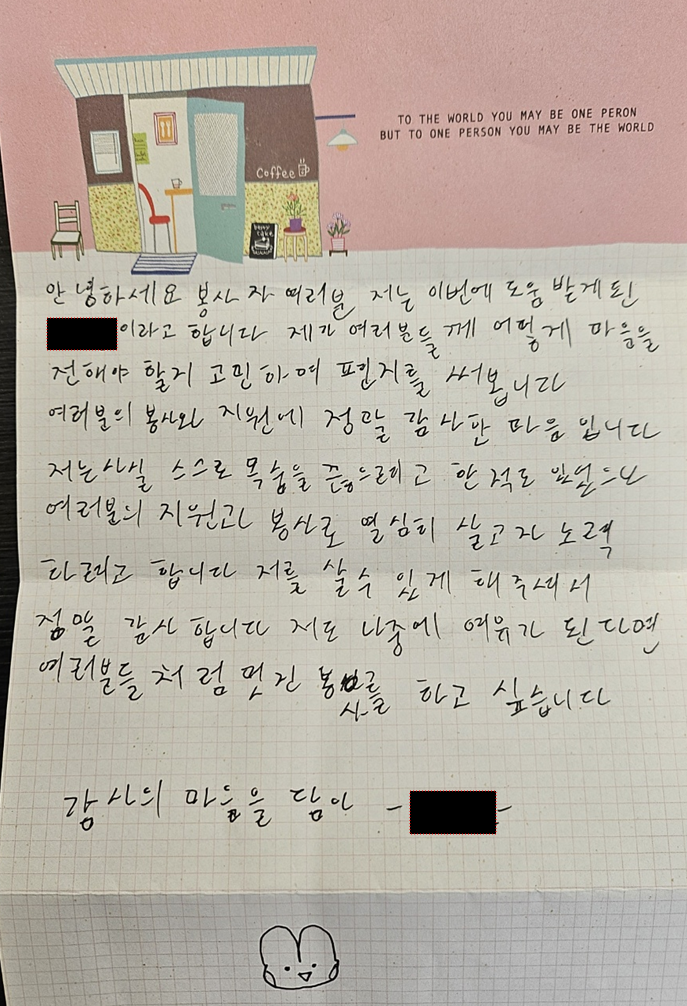 TO THE WORLD YOU MAY BE ONE PERON
BUT TO ONE PERSON YOU MAY BE THE WORLD
Coffee
안녕하세요 봉사 자 여러분 저는 이번에 도움 받게된
이라고 합니다 제가 여러분들께 어떻게 마음을
전해야 할지 고민하며 편지를 써봅니다
여러분의 봉사와 지원에 정말 감사한 마음 입니다
저는사실 스스로 목숨을 끊으려고 한적도 있었으나
여러분의 지원과 봉사로 열심히 살고자 노력
하려고 합니다 저를 살수 있게 해주셔서
정말 감사합니다 저도 나중에 여유가 된다면
여러분들처럼 멋진 봉사를 하고 싶습니다
감사의 마음을 담아 - -